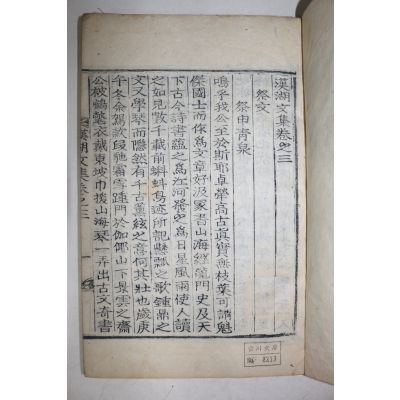 漢湖文集卷之三
祭文
祭申青泉
嗚乎我公至於斯耶卓犖高古真實無枝葉可謂魁
傑國士而保爲文章好汲冢書山海經龍門史及天
下古今詩書蘊之爲江河發之爲日星風雨使人讀
之如見數千載前蝌蚪鳥迹所記縣瓢之歌鍾鼎之
文又學琴而隱然有千古薰絃之意何其壯也歲庚
午冬余駕款段䮄霜雪踵門於伽倻山下景雲之齋
公被鶴氅衣戴東坡巾撫山海琴一弄出古文奇書
漢湖文集卷之三